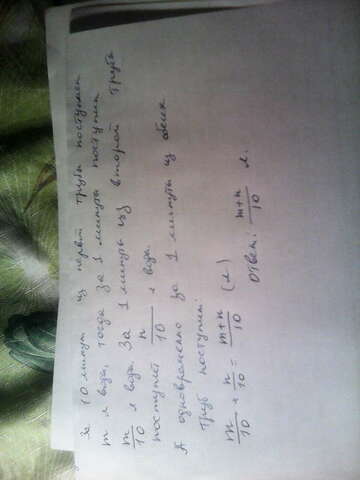 За 10 минут из первой трубы поступает
m л воды, тогда за 1 минуту поступит
m/10 л воды. За 1 минуту из второй трубы
поступает n/10 л воды.
А одновременно за 1 минуту из обеих
труб поступит:
m/10 + n/10 = m+n/10 (л)
Ответ: m+n/10 л.